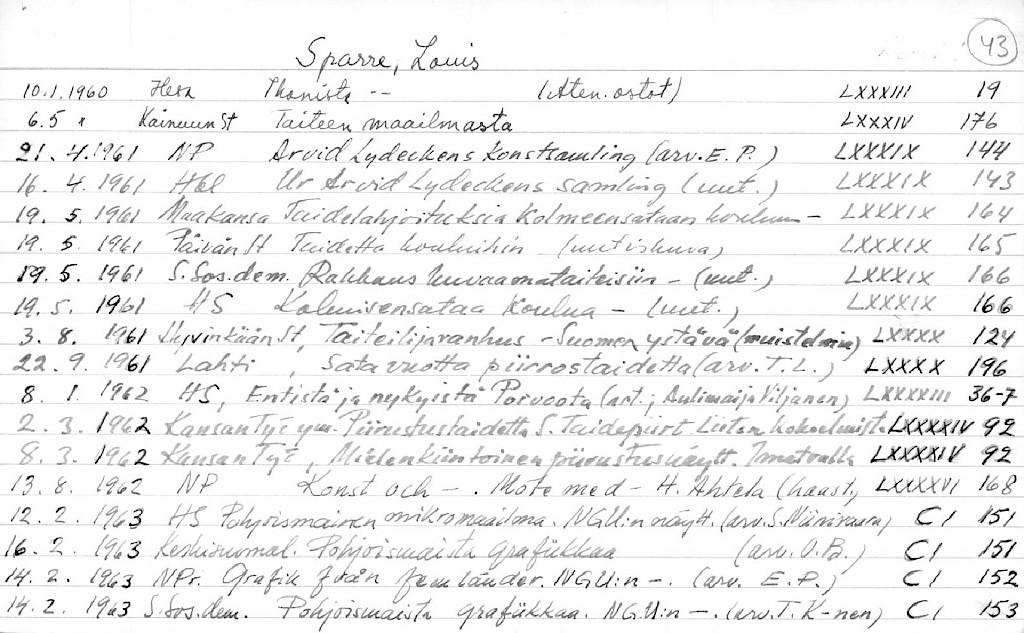 43
Sparre, Louis
10.1.1960 Hesa Ihmistä -- (Aten. ostot) LXXXIII 19
6.5 " Kainuun St Taiteen maailmasta LXXXIV 176
21. 4.1961 NP Arvid Lydeckens konstsamling (arv. E. P.) LXXXIX 144
16. 4. 1961 Hbl Ur Arvid Lydeckens samling (uut.) LXXXIX 143
19. 5. 1961 Maakansa Taidelahjoituksia kolmeensataan kouluun - LXXXIX 164
19. 5. 1961 Päivän St Taidetta kouluihin (uutiskuva) LXXXIX 165
19. 5. 1961 S. Sos. dem. Rakkaus kuvaamataiteisiin - (uut.) LXXXIX 166
19. 5. 1961 HS Kolmisensataa koulua - (uut.) LXXXIX 166
3. 8. 1961 Hyvinkään St, Taiteilijavanhus - Suomen ystävä (muistelmia) LXXXX 124
22. 9. 1961 Lahti, Sata vuotta piirrostaidetta (arv. T. L.) LXXXX 196
8. 1. 1962 HS, Entistä ja nykyistä Porvoota (art.; Aulimaija Viljanen) LXXXXIII 36-7
2. 3. 1962 Kansan Työ ym. Piirustustaidetta S. Taidepiirt. Liiton kokoelmista LXXXXIV 92
8. 3. 1962 Kansan Työ, Mielenkiintoinen piirustusnäytt. Imatralla LXXXXIV 92
13. 8. 1962 NP Konst och -. Möte med - H. Ahtela (haast.) LXXXXVI 168
12. 2. 1963 HS Pohjoismainen mikromaailma. NGU:n näytt. (arv. S. Niinivaara) CI 151
16. 2. 1963 Keskisuomal. Pohjoismaista grafiikkaa (arv. O. B.) CI 151
14. 2. 1963 NPr. Grafik från fem länder. NGU:n -. (arv. E. P.) CI 152
14. 2. 1963 S. Sos. dem. Pohjoismaista grafiikkaa. NGU:n -. (arv. T. K-nen) CI 153